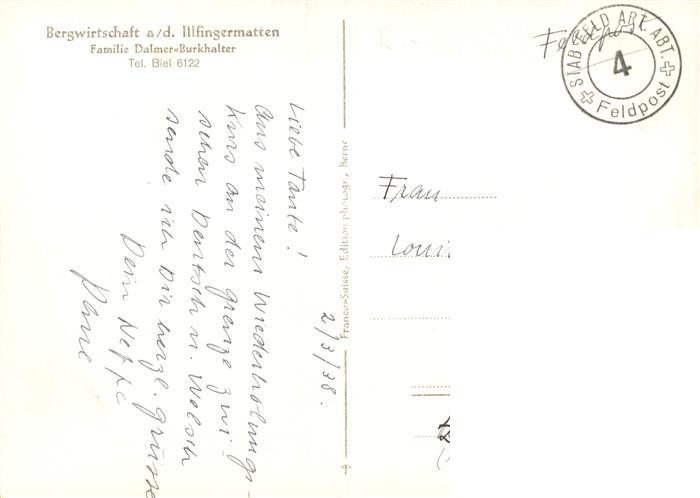 Bergwirtschaft a/d. Illfingermatten
Familie Dalmer-Burkhalter
Tel. Biel 6122
Liebe Tante!
Aus meinem Wiederholungs-
kurs an der Grenze zwi-
schen Deutsch u. Welsch
sende ich Dir herzl. Grüsse
Dein Neffe
Paul
2/3/38.
Franco-Suisse, Edition photogr., Berne
Feldpost
STAB FELD ART. ABT.
4
Feldpost
Frau